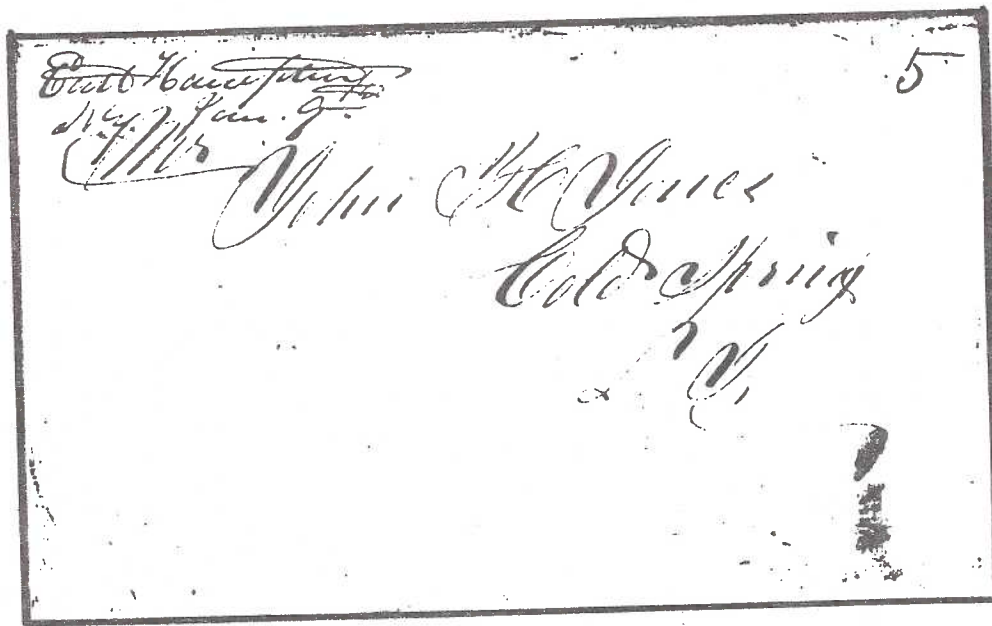 East Hampton
N.Y. Jan. 9th
5
Mr
John H Jones
Cold Spring
L I,